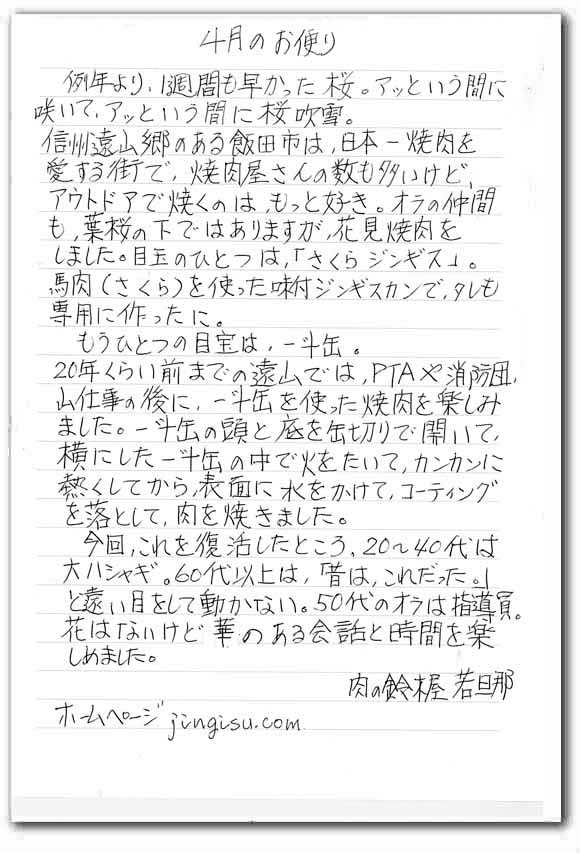 4月のお便り
例年より、1週間も早かった桜。アッという間に
咲いて、アッという間に桜吹雪。
信州遠山郷のある飯田市は、日本一焼肉を
愛する街で、焼肉屋さんの数も多いけど、
アウトドアで焼くのは、もっと好き。オラの仲間
も、葉桜の下ではありますが、花見焼肉を
しました。目玉のひとつは、「さくらジンギス」。
馬肉(さくら)を使った味付ジンギスカンで、タレも
専用に作ったに。
もうひとつの目宝は、一斗缶。
20年くらい前までの遠山では、PTAや消防団、
山仕事の後に、一斗缶を使った焼肉を楽しみ
ました。一斗缶の頭と底を缶切りで開いて、
横にした一斗缶の中で火をたいて、カンカンに
熱くしてから、表面に水をかけて、コーティング
を落として、肉を焼きました。
今回、これを復活したところ、20〜40代は
大ハシャギ。60代以上は、「昔は、これだった。」
と遠い目をして動かない。50代のオラは指導員。
花はないけど華のある会話と時間を楽
しめました。
肉の鈴木屋 若旦那
ホームページ jingisu.com